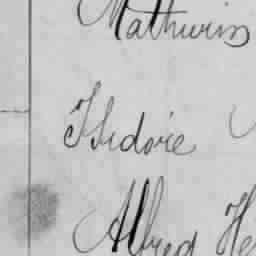 Mathurin
Isidore
Alfred He